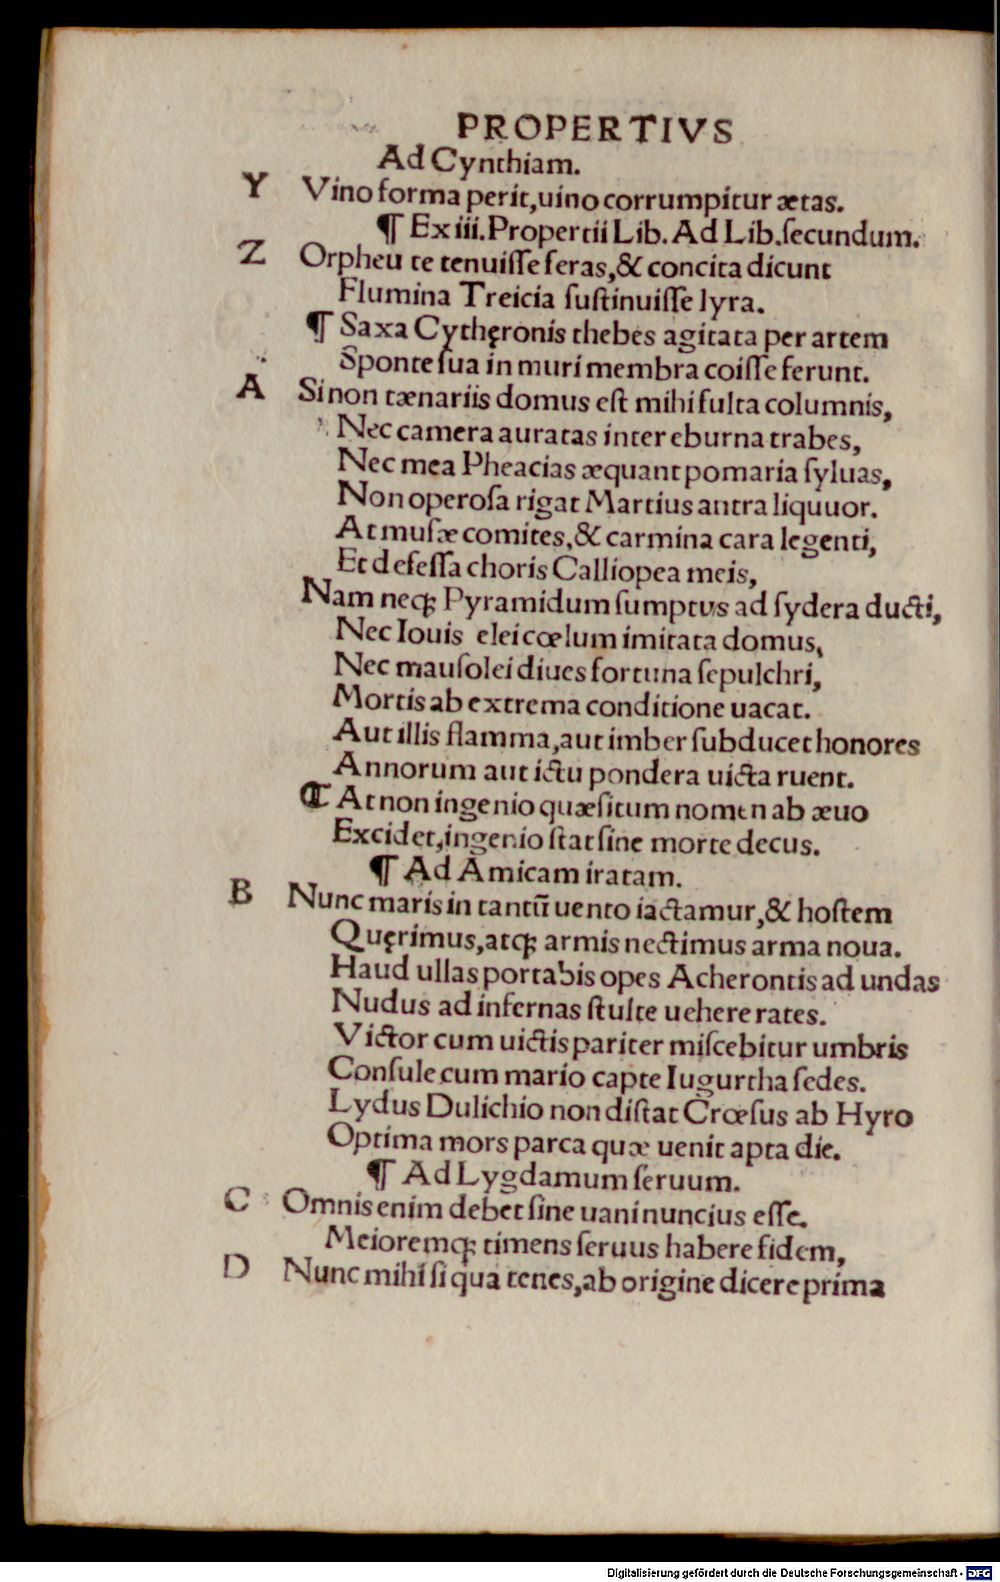 PROPERTIVS
Ad Cynthiam.
Y Vino forma perit,uino corrumpitur ætas.
¶ Ex iii.Propertii Lib. Ad Lib.ſecundum.
Z Orpheu te tenuiſſe feras,& concita dicunt
Flumina Treicia ſuſtinuiſſe lyra.
¶ Saxa Cythęronis thebes agitata per artem
Sponte ſua in muri membra coiſſe ferunt.
A Si non tænariis domus eſt mihi fulta columnis,
Nec camera auratas inter eburna trabes,
Nec mea Pheacias æquant pomaria ſyluas,
Non operoſa rigat Martius antra liquuor.
At muſæ comites,& carmina cara legenti,
Et defeſſa choris Calliopea meis,
Nam neqꝫ Pyramidum ſumptus ad ſydera ducti,
Nec Iouis elei cœlum imitata domus,
Nec mauſolei diues fortuna ſepulchri,
Mortis ab extrema conditione uacat.
Aut illis flamma,aut imber ſubducet honores
Annorum aut ictu pondera uicta ruent.
¶ At non ingenio quæſitum nomen ab æuo
Excidet,ingenio ſtat ſine morte decus.
¶ Ad Amicam iratam.
B Nunc maris in tantū uento iactamur,& hoſtem
Quęrimus,atqꝫ armis nectimus arma noua.
Haud ullas portabis opes Acherontis ad undas
Nudus ad infernas ſtulte uehere rates.
Victor cum uictis pariter miſcebitur umbris
Conſule cum mario capte Iugurtha ſedes.
Lydus Dulichio non diſtat Crœſus ab Hyro
Optima mors parca quæ uenit apta die.
¶ Ad Lygdamum ſeruum.
C Omnis enim debet ſine uani nuncius eſſe.
Meioremqꝫ timens ſeruus habere fidem,
D Nunc mihi ſi qua tenes,ab origine dicere prima
Digitalisierung gefördert durch die Deutsche Forschungsgemeinschaft - DFG